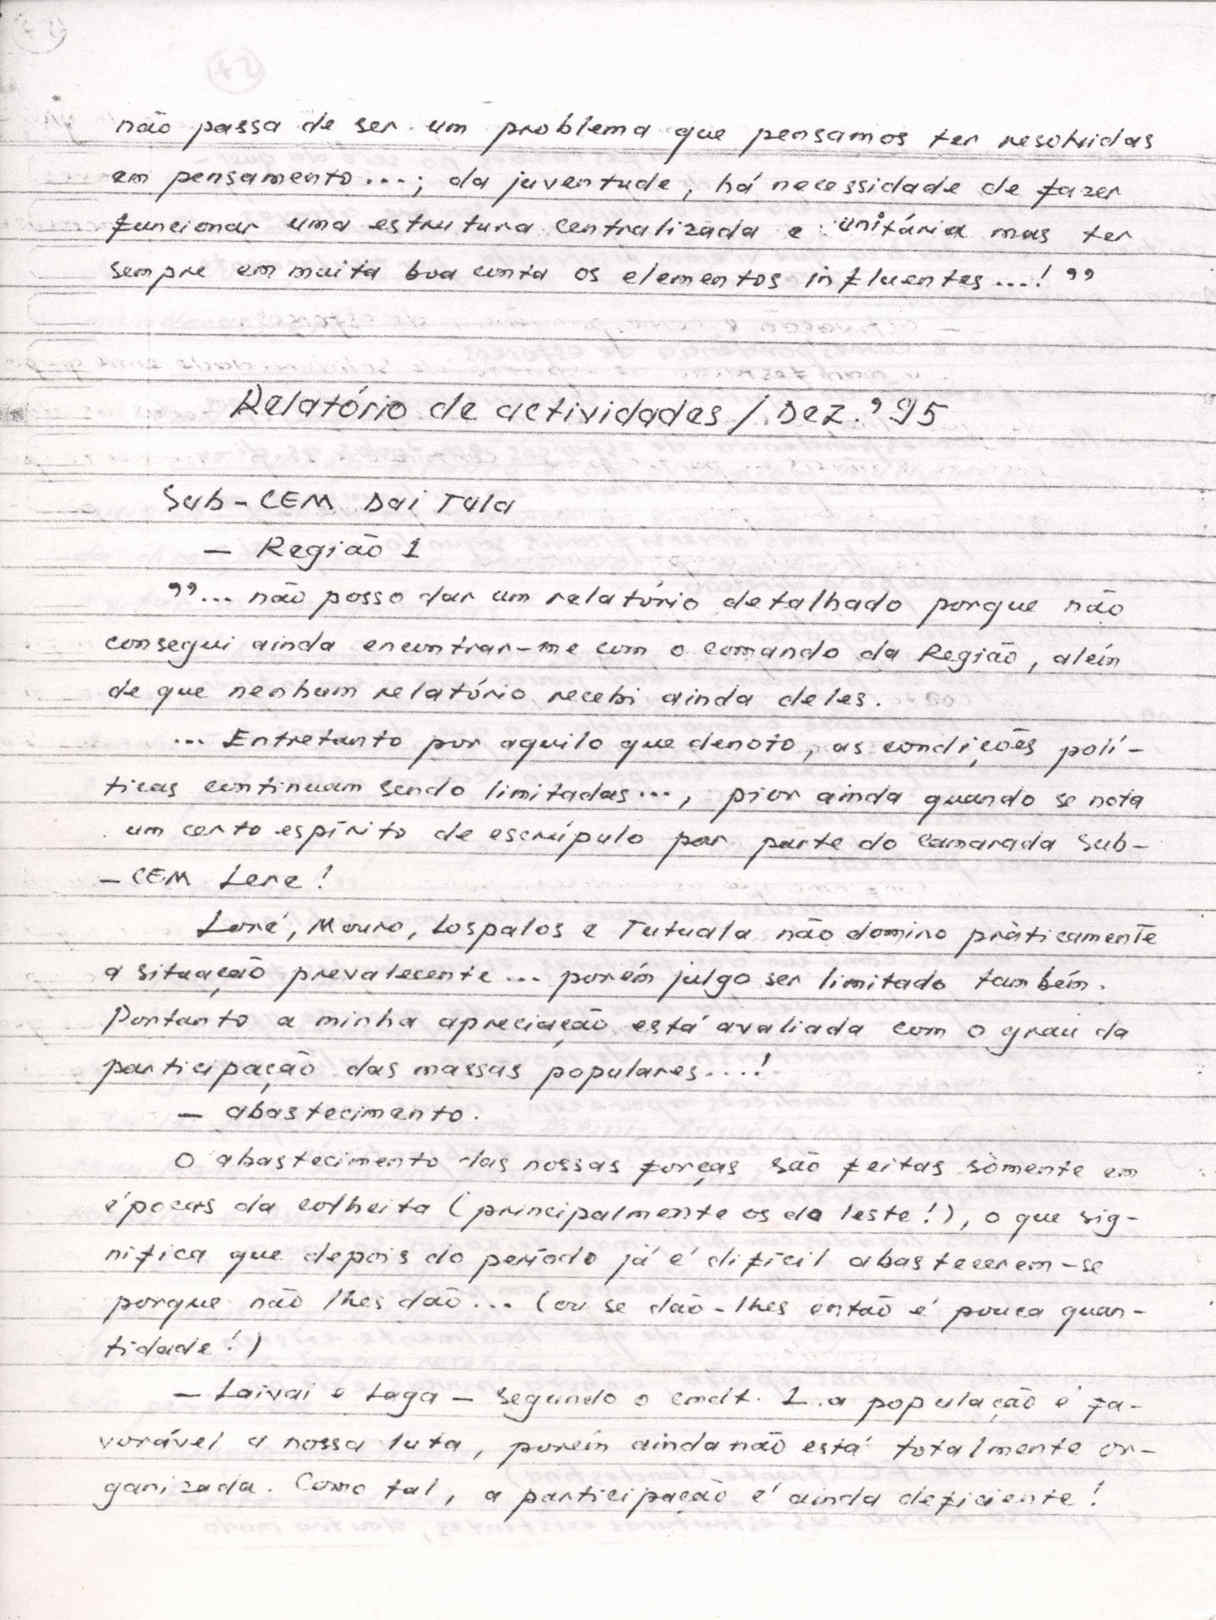 não passa de ser um problema que pensamos ter resolvidas
em pensamento...; da juventude, há necessidade de fazer
funcionar uma estrutura centralizada e unitária mas ter
sempre em muita boa conta os elementos influentes...! ”
Relatório de actividades / Dez. ’95
Sub-CEM Dai Tula
— Região 1
”... não posso dar um relatório detalhado porque não
consegui ainda encontrar-me com o comando da Região, além
de que nenhum relatório recebi ainda deles.
... Entretanto por aquilo que denoto, as condições polí-
ticas continuam sendo limitadas..., pior ainda quando se nota
um certo espírito de escrúpulo por parte do camarada Sub-
-CEM Lere!
Loré, Mouro, Lospalos e Tutuala não domino pràticamente
a situação prevalecente... porém julgo ser limitado também.
Portanto a minha apreciação está avaliada com o grau da
participação das massas populares...!
— abastecimento.
O abastecimento das nossas forças são feitas sòmente em
épocas da colheita (principalmente os do leste!), o que sig-
nifica que depois do período já é difícil abastecerem-se
porque não lhes dão... (ou se dão-lhes então é pouca quan-
tidade!)
— Laivai e Laga — segundo o cmdt. 1 a população é fa-
vorável a nossa luta, porém ainda não está totalmente or-
ganizada. Como tal, a participação é ainda deficiente!